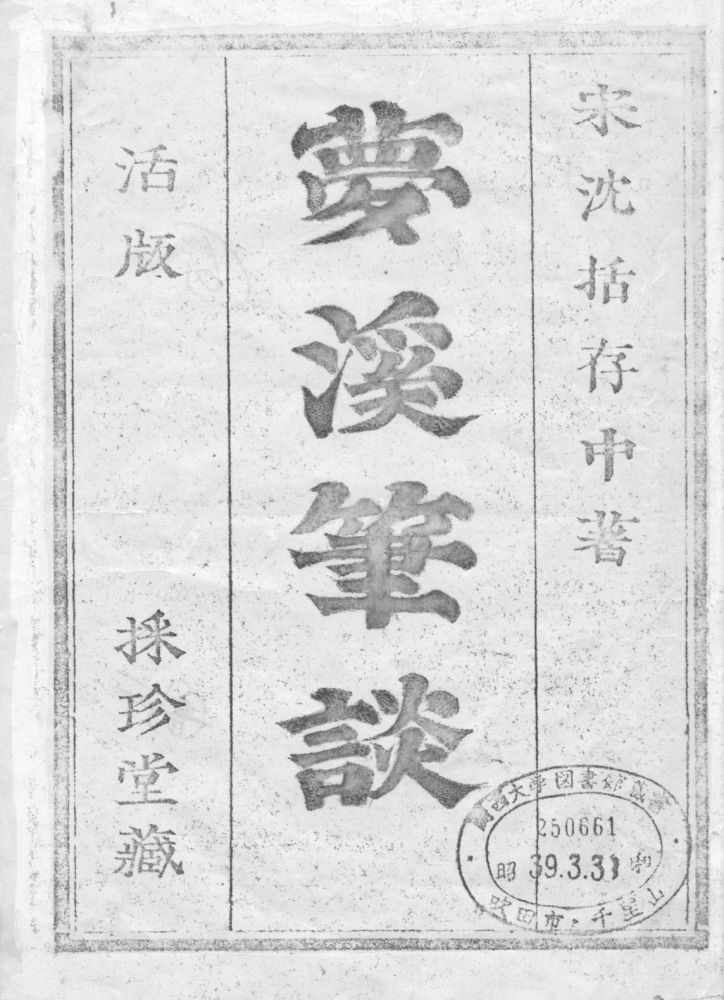 宋沈括存中著
夢溪筆談
活版
採珍堂藏
關西大学図書館蔵書
250661
昭和 39.3.31
吹田市・千里山